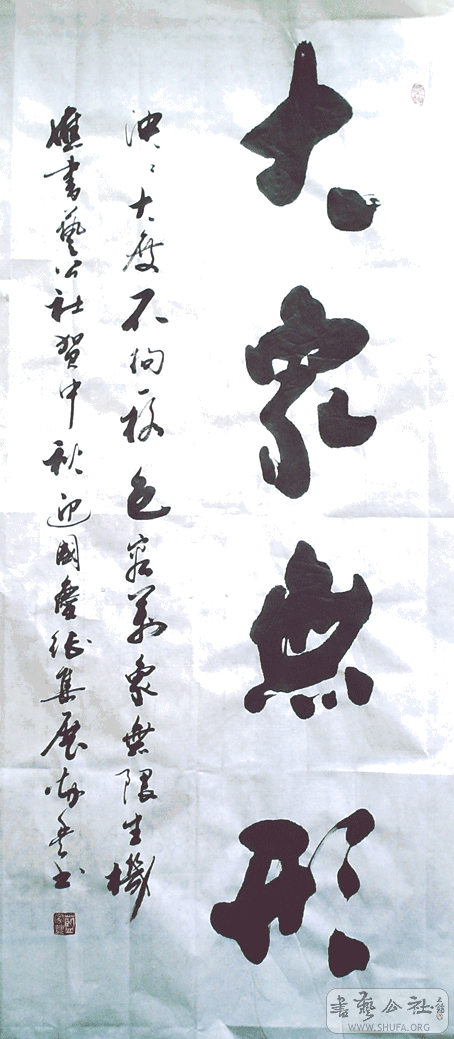 大象無形
泱泱大度不拘一格包容万象無限生機
應書藝公社賀中秋迎國慶征集展
書藝公社
WWW.SHUFA.ORG